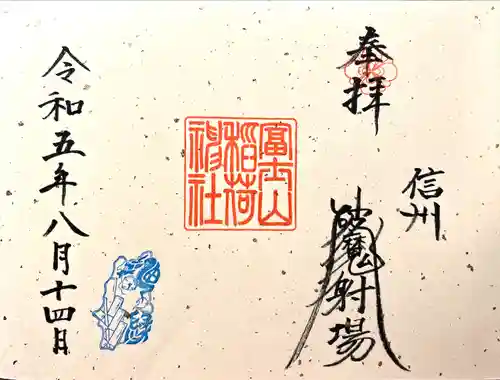 奉拝
信州
破魔射場
富士山
稲荷
神社
令和五年八月十四日